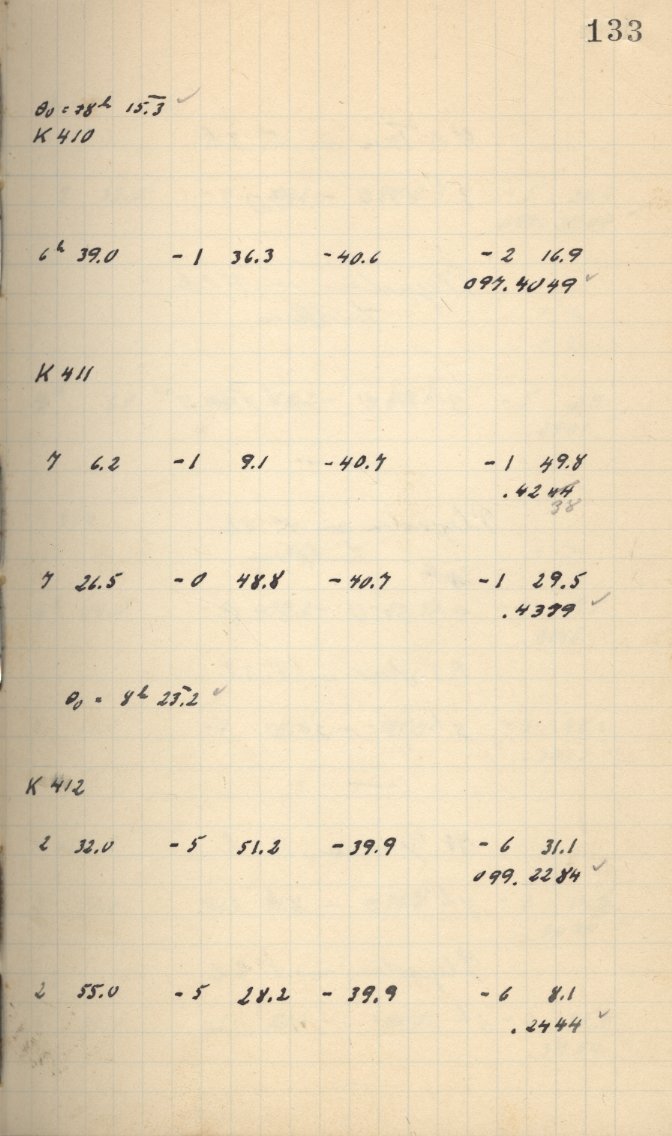 133
θ₀ = 78ʰ 15.3 ✓
K 410
6ʰ 39.0 - 1 36.3 - 40.6 - 2 16.9
097.4049 ✓
K 411
7 6.2 - 1 9.1 - 40.7 - 1 49.8
.4244
38
7 26.5 - 0 48.8 - 40.7 - 1 29.5
.4379 ✓
θ₀ = 8ʰ 25.2 ✓
K 412
2 32.0 - 5 51.2 - 39.9 - 6 31.1
099.2284 ✓
2 55.0 - 5 28.2 - 39.9 - 6 8.1
.2444 ✓